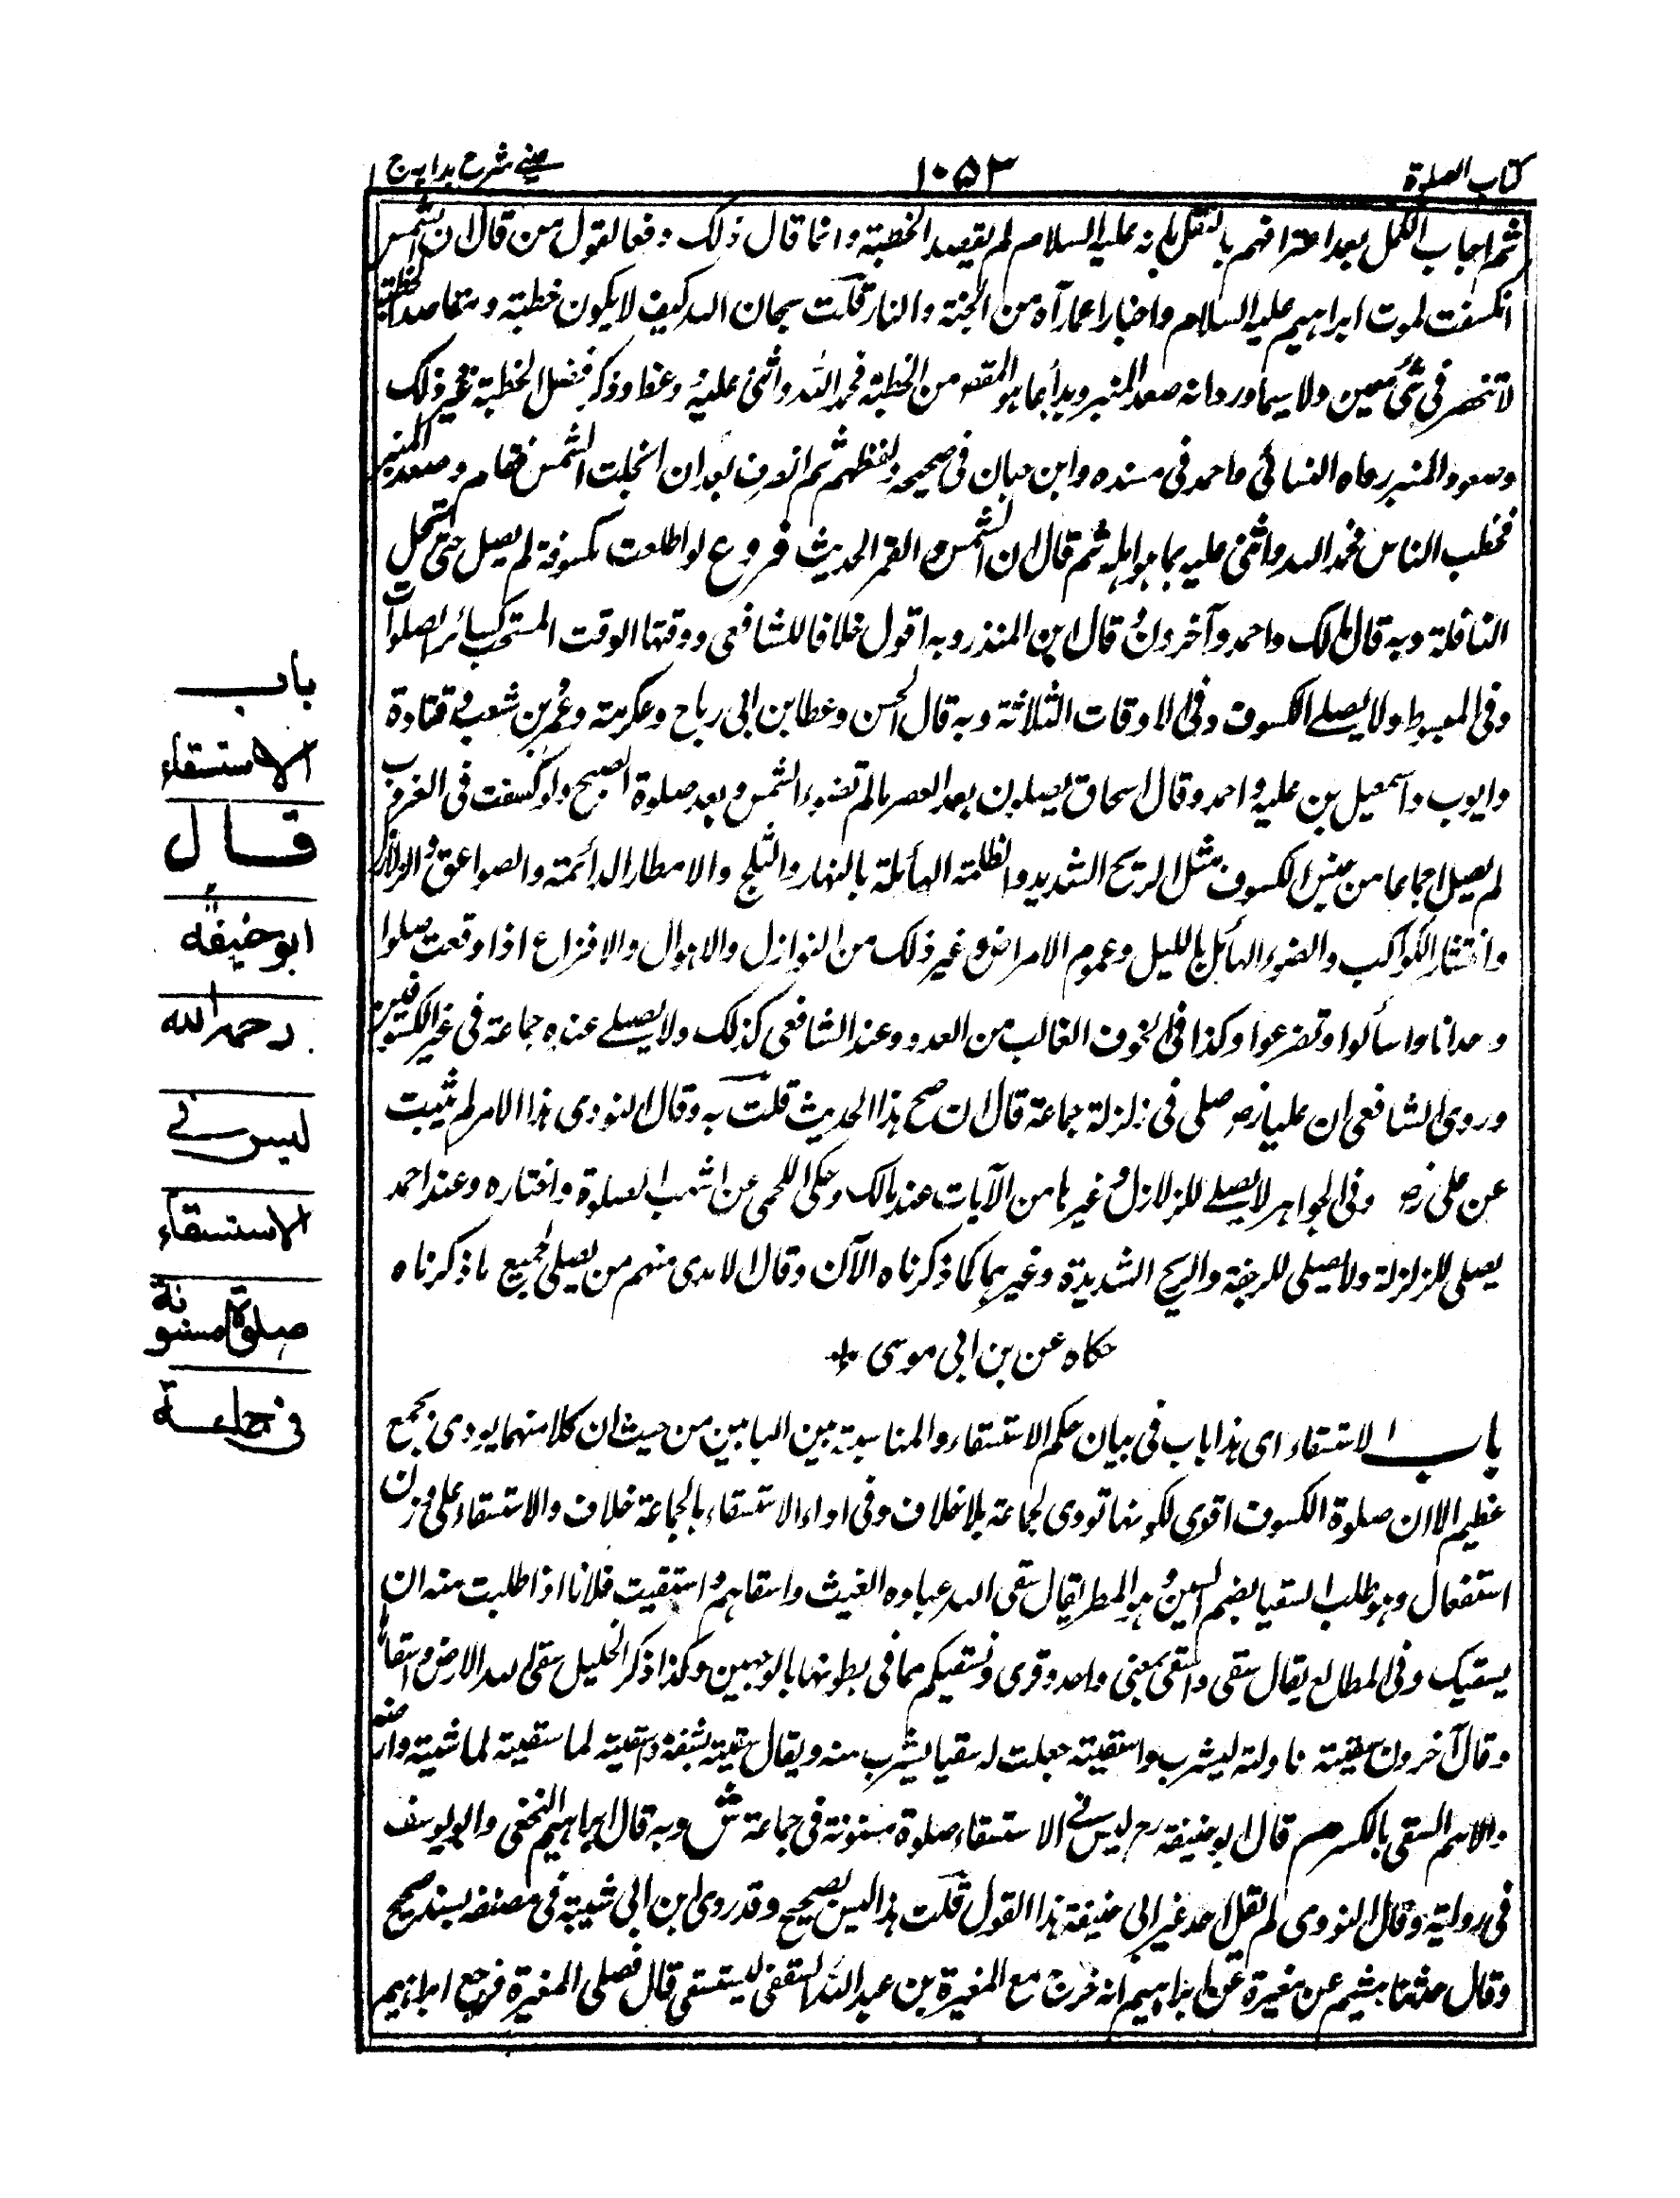 كتاب الصلوة
١٠٥٣
عينے شرح ہدایہ ج ١
ثم اجاب الكمل بعد اعترافهم بالنقل بانه عليه السلام لم يقصد الخطبة وانما قال ذلك دفعا لقول من قال ان الشمس
انكسفت لموت ابراهيم عليه السلام واخبارا عما رآه من الجنة والنار قلت سبحان الله كيف لا يكون خطبة ومقاصد الخطبة
لا تنحصر فى شئ معين ولا سيما ورد انه صعد المنبر وبدأ بما هو المقصود من الخطبة فحمد الله واثنى عليه ووعظ وذكر فضل الخطبة غير ذلك
وصعود المنبر رواه النسائي واحمد فى مسنده وابن حبان فى صحيحه ولفظهم ثم انصرف بعد ان انجلت الشمس فقام وصعد المنبر
فخطب الناس فحمد الله واثنى عليه بما هو اهله ثم قال ان الشمس والقمر الحديث فروع لو اطلعت مكسوفة لم يصل حتى تحل
النافلة وبه قال مالك واحمد وآخرون و قال ابن المنذر وبه اقول خلافا للشافعى ووقتها الوقت المستحب كسائر الصلوات
وفى المبسوط ولا يصلے الكسوف فى الاوقات الثلاثة وبه قال الحسن وعطا بن ابى رباح وعكرمة وعمر بن شعيب و قتادة
وايوب واسمعيل بن علية و احمد وقال اسحاق يصلون بعد العصر مالم تضوء الشمس وبعد صلوة الصبح ولو كسفت فى الغروب
لم يصل اجماعا من جنس الكسوف مثل الريح الشديد والظلمة الهائلة بالنهار والثلج والامطار الدائمة والصواعق والزلازل
وانتشار الكواكب والضوء الهائل بالليل وعموم الامراض وغير ذلك من النوازل والاهوال والافزاع اذا وقعت صلوا
وحدانا واسألوا وتضرعوا وكذا فى الخوف الغالب من العدو وعند الشافعى كذلك ولا يصلے عنده جماعة فى غير الكسوفين
وروى الشافعى ان عليا رضـ صلى فى زلزلة جماعة قال ان صح هذا الحديث قلت به وقال النووى هذا الامر لم يثبت
عن على رضـ وفى الجواهر لا يصلے للزلازل و غيرها من الآيات عند مالك وحكى اللخمى عن اشهب الصلوة واختاره وعند احمد
يصلى للزلزلة ولا يصلى للرجفة والريح الشديدة وغيرهما كما ذكرناه الآن وقال الآمدى منهم من يصلى لجميع ما ذكرناه
حكاه عن بن ابى موسى
باب الاستسقاء اى هذا باب فى بيان حكم الاستسقاء والمناسبة بين البابين من حيث ان كلا منهما يودى بجمع
عظيم الا ان صلوة الكسوف اقوى لكونها تودى بجماعة بلا خلاف وفى اداء الاستسقاء بالجماعة خلاف والاستسقاء على وزن
استفعال وهو طلب السقيا بضم السين و هو المطر يقال سقى الله عباده الغيث واسقاهم و استسقيت فلانا اذا طلبت منه ان
يسقيك وفى المطالع يقال سقى واسقى بمعنى واحد وقرى ونسقيكم مما فى بطونها بالوجهين وكذا ذكر الخليل سقى الله الارض واسقاها
وقال آخرون سقيته ناولته ليشرب واسقيته جعلت له سقيا يشرب منه ويقال سقيته لشفته واسقيته لماشيته وارضه
والاسم السقى بالكسر م قال ابو حنيفة رح ليس فے الاستسقاء صلوة مسنونة فى جماعة ش وبه قال ابراهيم النخعى وابو يوسف
فى رواية وقال النووى لم يقل احد غير ابى حنيفة هذا القول قلت هذا ليس بصحيح وقد روى ابن ابى شيبة فى مصنفه بسند صحيح
وقال حدثنا هشيم عن مغيرة عن ابراهيم انه خرج مع المغيرة بن عبد الله الثقفى ليستسقى قال فصلى المغيرة فرجع ابراهيم
باب
الاستسقاء
قال
ابو حنيفة
رحمه الله
ليس فے
الاستسقاء
صلوة مسنونة
فى جماعة